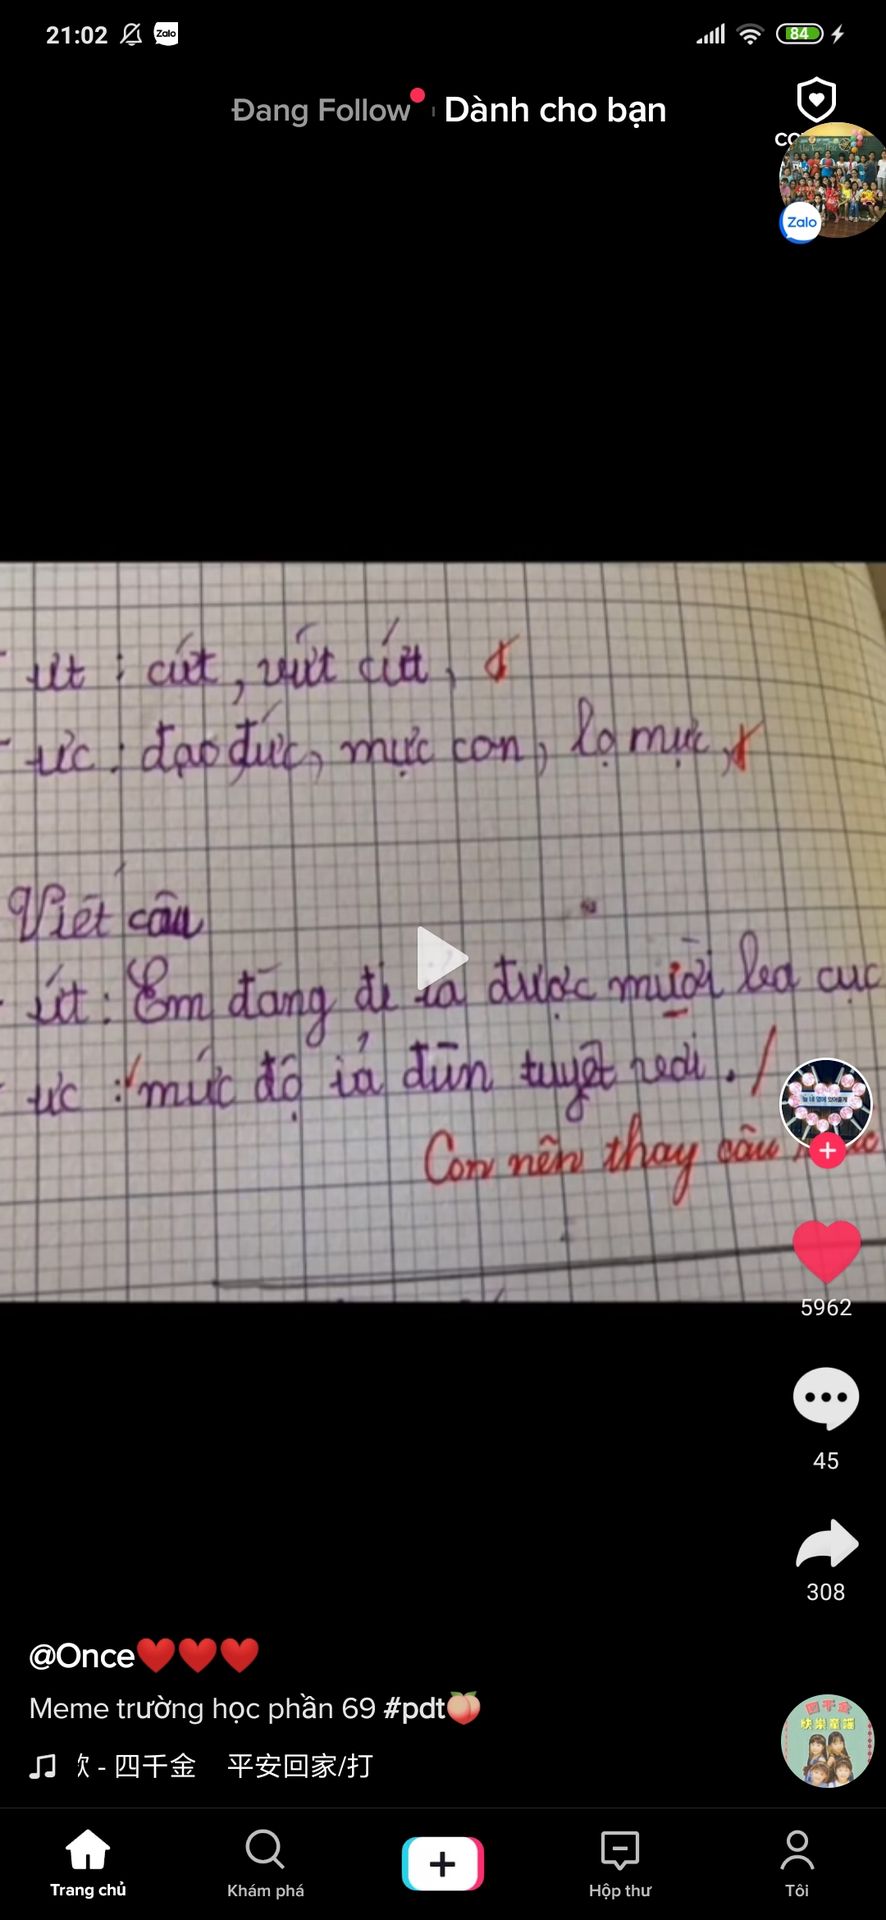 21:02 Zalo 84
Đang Follow Dành cho bạn
Zalo
ưt : cứt, vứt cứt,
ưc : đạo đức, mực con, lọ mực,
Viết câu
ứt: Em đang đi ỉa được mười ba cục
ưc : mức độ ỉa đùn tuyệt vời.
Con nên thay câu
5962
45
308
@Once❤️❤️❤️
Meme trường học phần 69 #pdt🍑
欢 - 四千金 平安回家/打
四千金
快樂童謠
Trang chủ
Khám phá
Hộp thư
Tôi